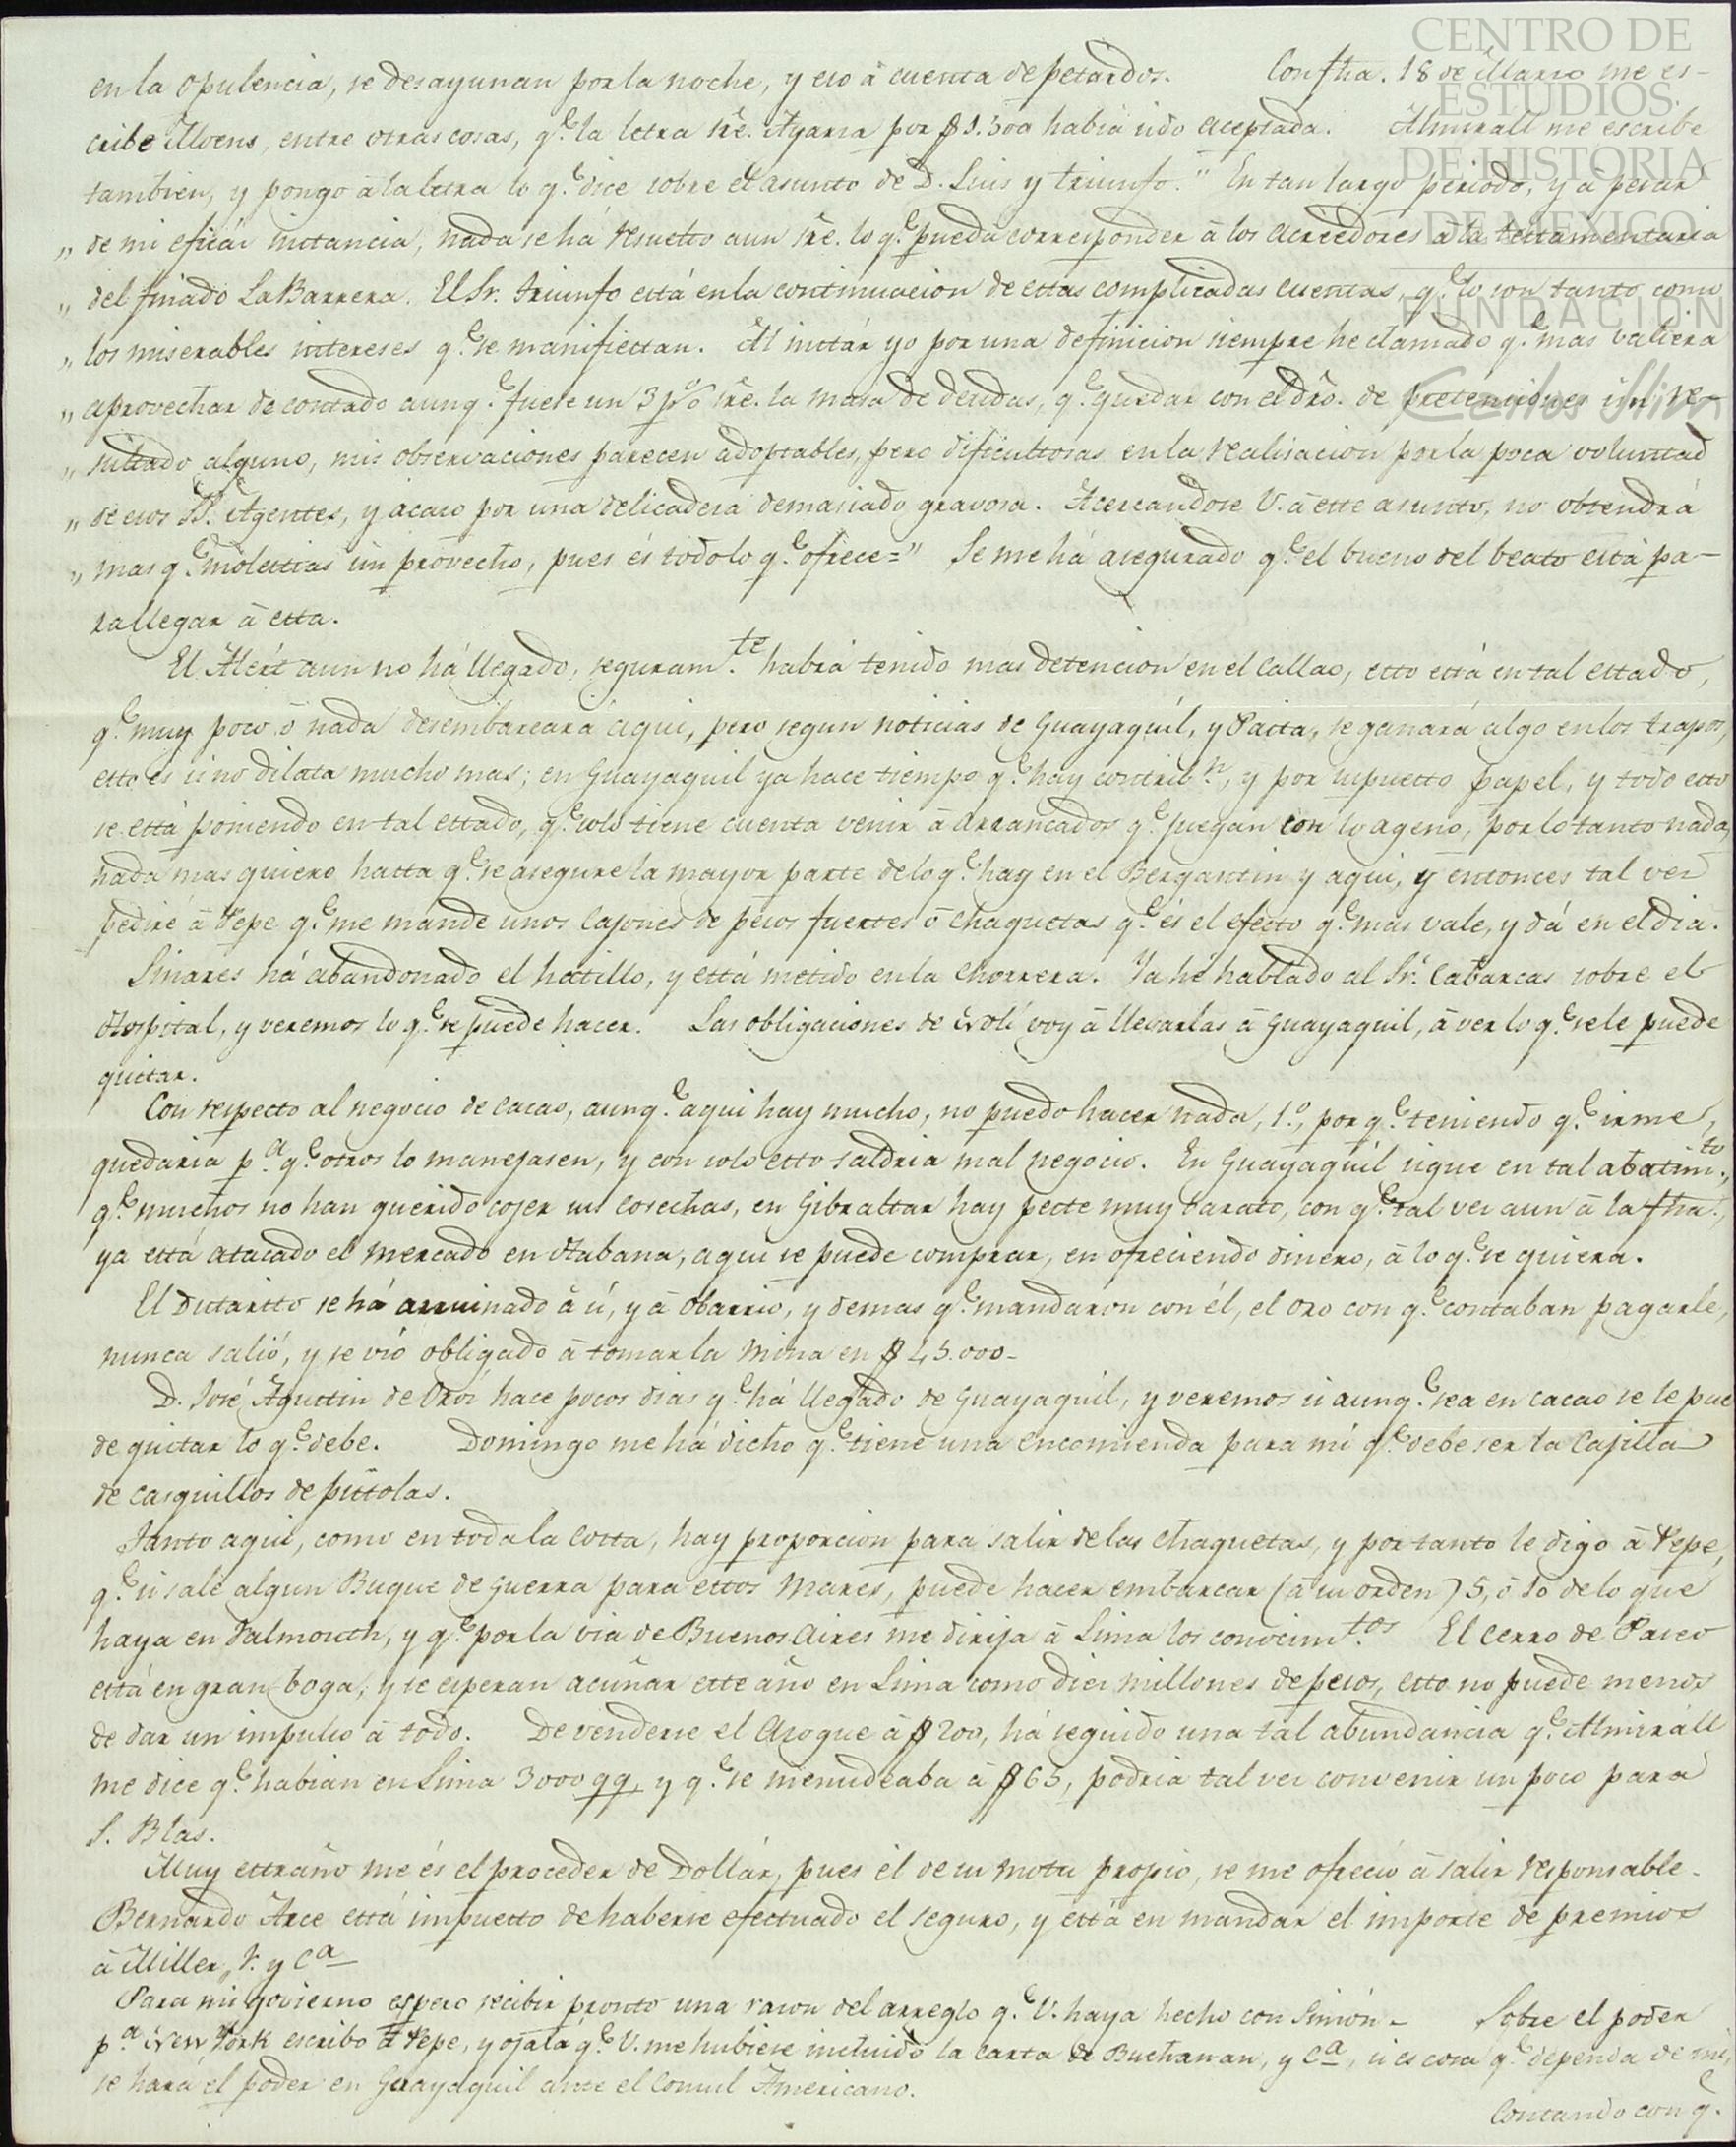 CENTRO DE
ESTUDIOS
DE HISTORIA
DE MEXICO
FUNDACIÓN
Carlos Slim
en la opulencia, se desayunan por la noche, y eso á cuenta de petardos. Con fha. 18 de Marzo me es-
cribe Mvens, entre otras cosas, q.e la letra sre. Ayarza por $1.500 habia sido aceptada. Almirall me escribe
tambien, y pongo á la letra lo q.e dice sobre el asunto de D. Luis y triunfo. " En tan largo periodo, y á pesar
„ de mi eficáz instancia, nada se há resuelto aun sre. lo q.e pueda corresponder á los acreedores á la testamentaria
„ del finado La Barrera. El Sr. triunfo está en la continuacion de estas complicadas cuentas, q.e lo son tanto como
„ los miserables intereses q.e se manifiestan. Al instár yo por una definicion siempre he clamado q.e mas valiera
„ aprovechar de contado aunq.e fuese un 3 p% sre. la masa de deudas, q.e quedar con el dro. de pretensiones sin re-
„ sultado alguno, mis observaciones parecen adoptables, pero dificultosas en la realisacion por la poca voluntad
„ de esos SS. Agentes, y acaso por una delicadesa demasiado gravosa. Acercandose V. á este asunto, no obtendrá
„ mas q.e molestias sin provecho, pues és todo lo q.e ofrece=" Se me há asegurado q.e el bueno del beato está pa-
ra llegar á esta.
El Alert aun no há llegado, seguram.te habrá tenido mas detencion en el Callao, esto está en tal estado,
q.e muy poco ó nada desembarcará aqui, pero segun noticias de Guayaquíl, y Paita, se ganará algo en los trapos,
esto es si no dilata mucho mas; en Guayaquil ya hace tiempo q.e hay contrib.n, y por supuesto papel, y todo esto
se está poniendo en tal estado, q.e solo tiene cuenta venir á arrancados q.e juegan con lo ageno, por lo tanto nada,
nada mas quiero hasta q.e se asegure la mayor parte de lo q.e hay en el Bergantin y aqui, y entonces tal vez
pediré á Pepe q.e me mande unos cajones de pesos fuertes ó chaquetas q.e és el efecto q.e mas vale, y dá en el dia.
Linares há abandonado el hatillo, y está metido en la Chorrera. Ya he hablado al Sr. Cabarcas sobre el
Hospital, y veremos lo q.e se puede hacer. Las obligaciones de Evolí voy á llevarlas á Guayaquil, á ver lo q.e se le puede
quitar.
Con respecto al negocio de cacao, aunq.e aqui hay mucho, no puedo hacer nada, 1.o, por q.e teniendo q.e irme,
quedaria p.a q.e otros lo manejasen, y con solo esto saldria mal negocio. En Guayaquíl sigue en tal abatim.to,
q.e muchos no han querido cojer sus cosechas, en Gibraltar hay peste muy barato, con q.e tal vez aun á la fha.,
ya está atacado el mercado en Habana, aqui se puede comprar, en ofreciendo dinero, á lo q.e se quiera.
El Dutarito se há arruinado á sí, y á Obarrio, y demas q.e mandaron con él, el oro con q.e contaban pagarle,
nunca salió, y se vió obligado á tomar la mina en $ 45.000-
D. José Agustin de Oroi hace pocos dias q.e há llegado de Guayaquíl, y veremos si aunq.e sea en cacao se le pue
de quitar lo q.e debe. Domingo me há dicho q.e tiene una encomienda para mí q.e debe ser la Cajilla
de casquillos de pistolas.
Tanto aqui, como en toda la Costa, hay proporcion para salir de las Chaquetas, y por tanto le digo á Pepe,
q.e si sale algun Buque de guerra para estos Mares, puede hacer embarcar (á su orden) 5, ó 10 de lo que
haya en Falmouth, y q.e por la via de Buenos Aires me dirija á Lima los conocim.tos El cerro de Pasco
está en gran boga, y se esperan acuñar este año en Lima como diez millones de pesos, esto no puede menos
de dar un impulso á todo. De venderse el Azogue á $ 200, há seguido una tal abundancia q.e Almiráll
me dice q.e habian en Lima 3000 qq y q.e se menudeaba á $ 65, podria tal vez convenir un poco para
S. Blas.
Muy estraño me és el proceder de Dollár, pues él de su motu propio, se me ofreció á salir responsable.
Bernardo Arce está impuesto de haberse efectuado el seguro, y está en mandar el importe de premios
á Miller, V. y Ca
Para mi govierno espero recibir pronto una razon del arreglo q.e V. haya hecho con Simón- Sobre el poder
p.a New York escribo á Pepe, y ojalá q.e V. me hubiese incluido la carta de Buchanan, y Ca, si es cosa q.e dependa de mí,
se hará el poder en Guayaquil ante el Consul Americano.
Contando con q.e